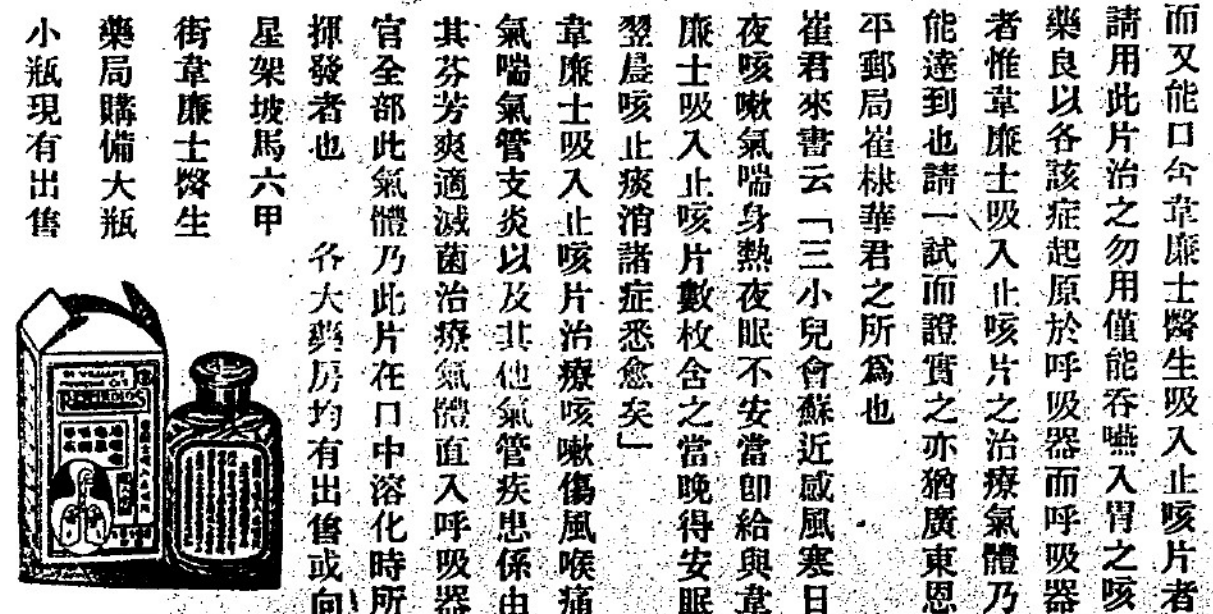 而又能口含韋廉士醫生吸入止咳片者
請用此片治之勿用僅能吞嚥入胃之咳
藥良以各該症起原於呼吸器而呼吸器
者惟韋廉士吸入止咳片之治療氣體乃
能達到也請一試而證實之亦猶廣東恩
平郵局崔棣華君之所爲也
崔君來書云「三小兒會蘇近感風寒日
夜咳嗽氣喘身熱夜眠不安當卽給與韋
廉士吸入止咳片數枚含之當晚得安眠
翌晨咳止痰消諸症悉愈矣」
韋廉士吸入止咳片治療咳嗽傷風喉痛
氣喘氣管支炎以及其他氣管疾患係由
其芬芳爽適滅菌治療氣體直入呼吸器
官全部此氣體乃此片在口中溶化時所
揮發者也 各大藥房均有出售或向
星架坡馬六甲
街韋廉士醫生
藥局購備大瓶
小瓶現有出售
REMEDIOS